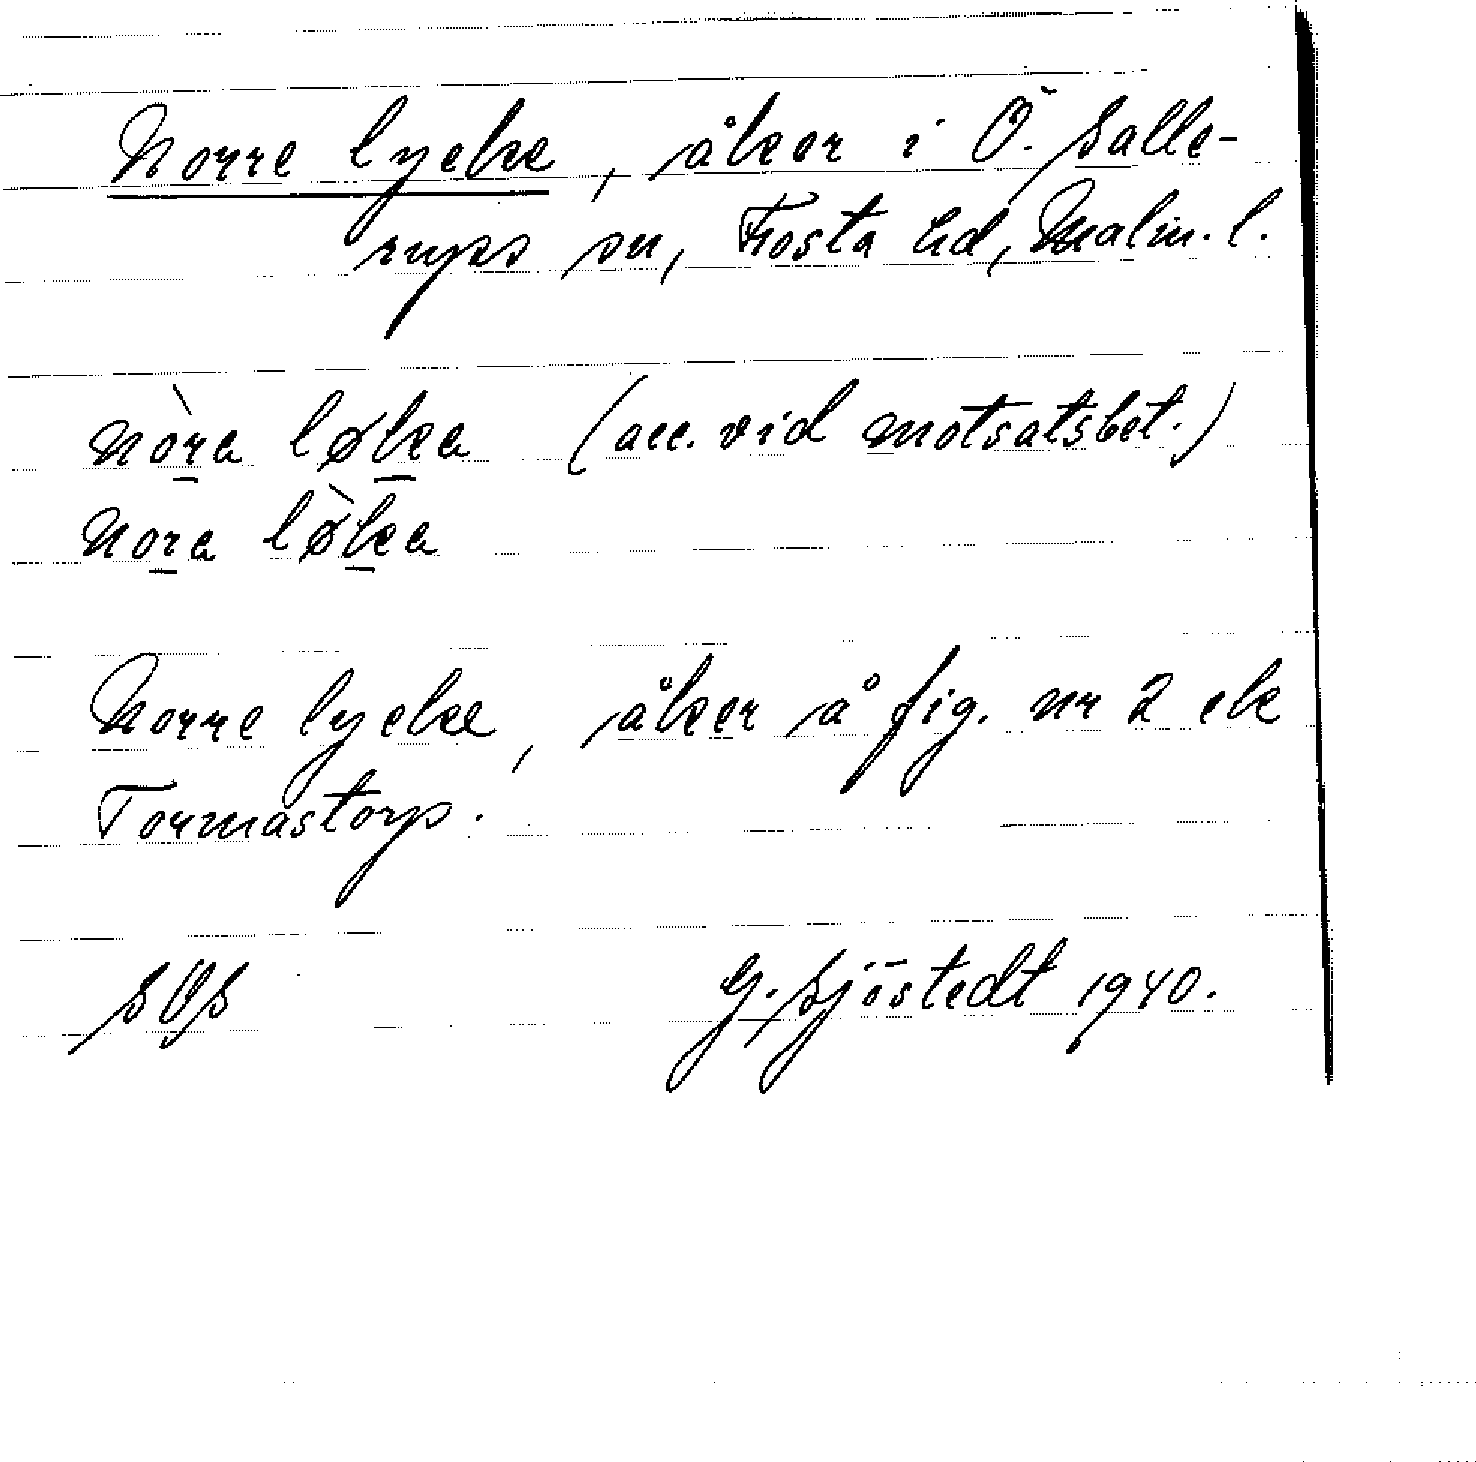 Norre lycke, åker i Ö. Salle-
rups sn, Frosta hd, Malm. l.
nòra løka (acc. vid motsatsbet.)
nora lø̀ka
Norre lycke, åker å fig. nr 2 ek
Tormastorp.
SOS G. Sjöstedt 1940.